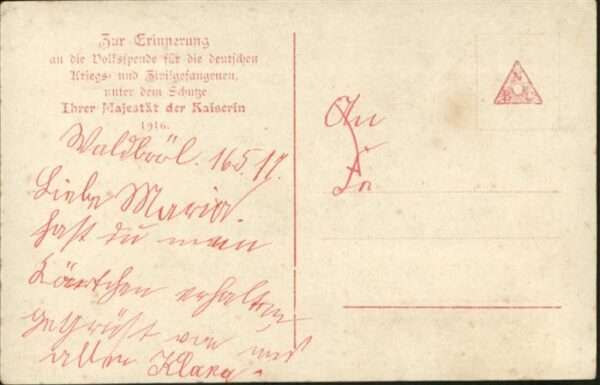 Zur Erinnerung
an die Volksspende für die deutschen
Kriegs- und Zivilgefangenen,
unter dem Schutze
Ihrer Majestät der Kaiserin
1916.
Waldbröl. 16.5.17.
Liebe Maria.
hast du mein
Kärtchen erhalten,
gegrüßt von uns
allen Klara.
An